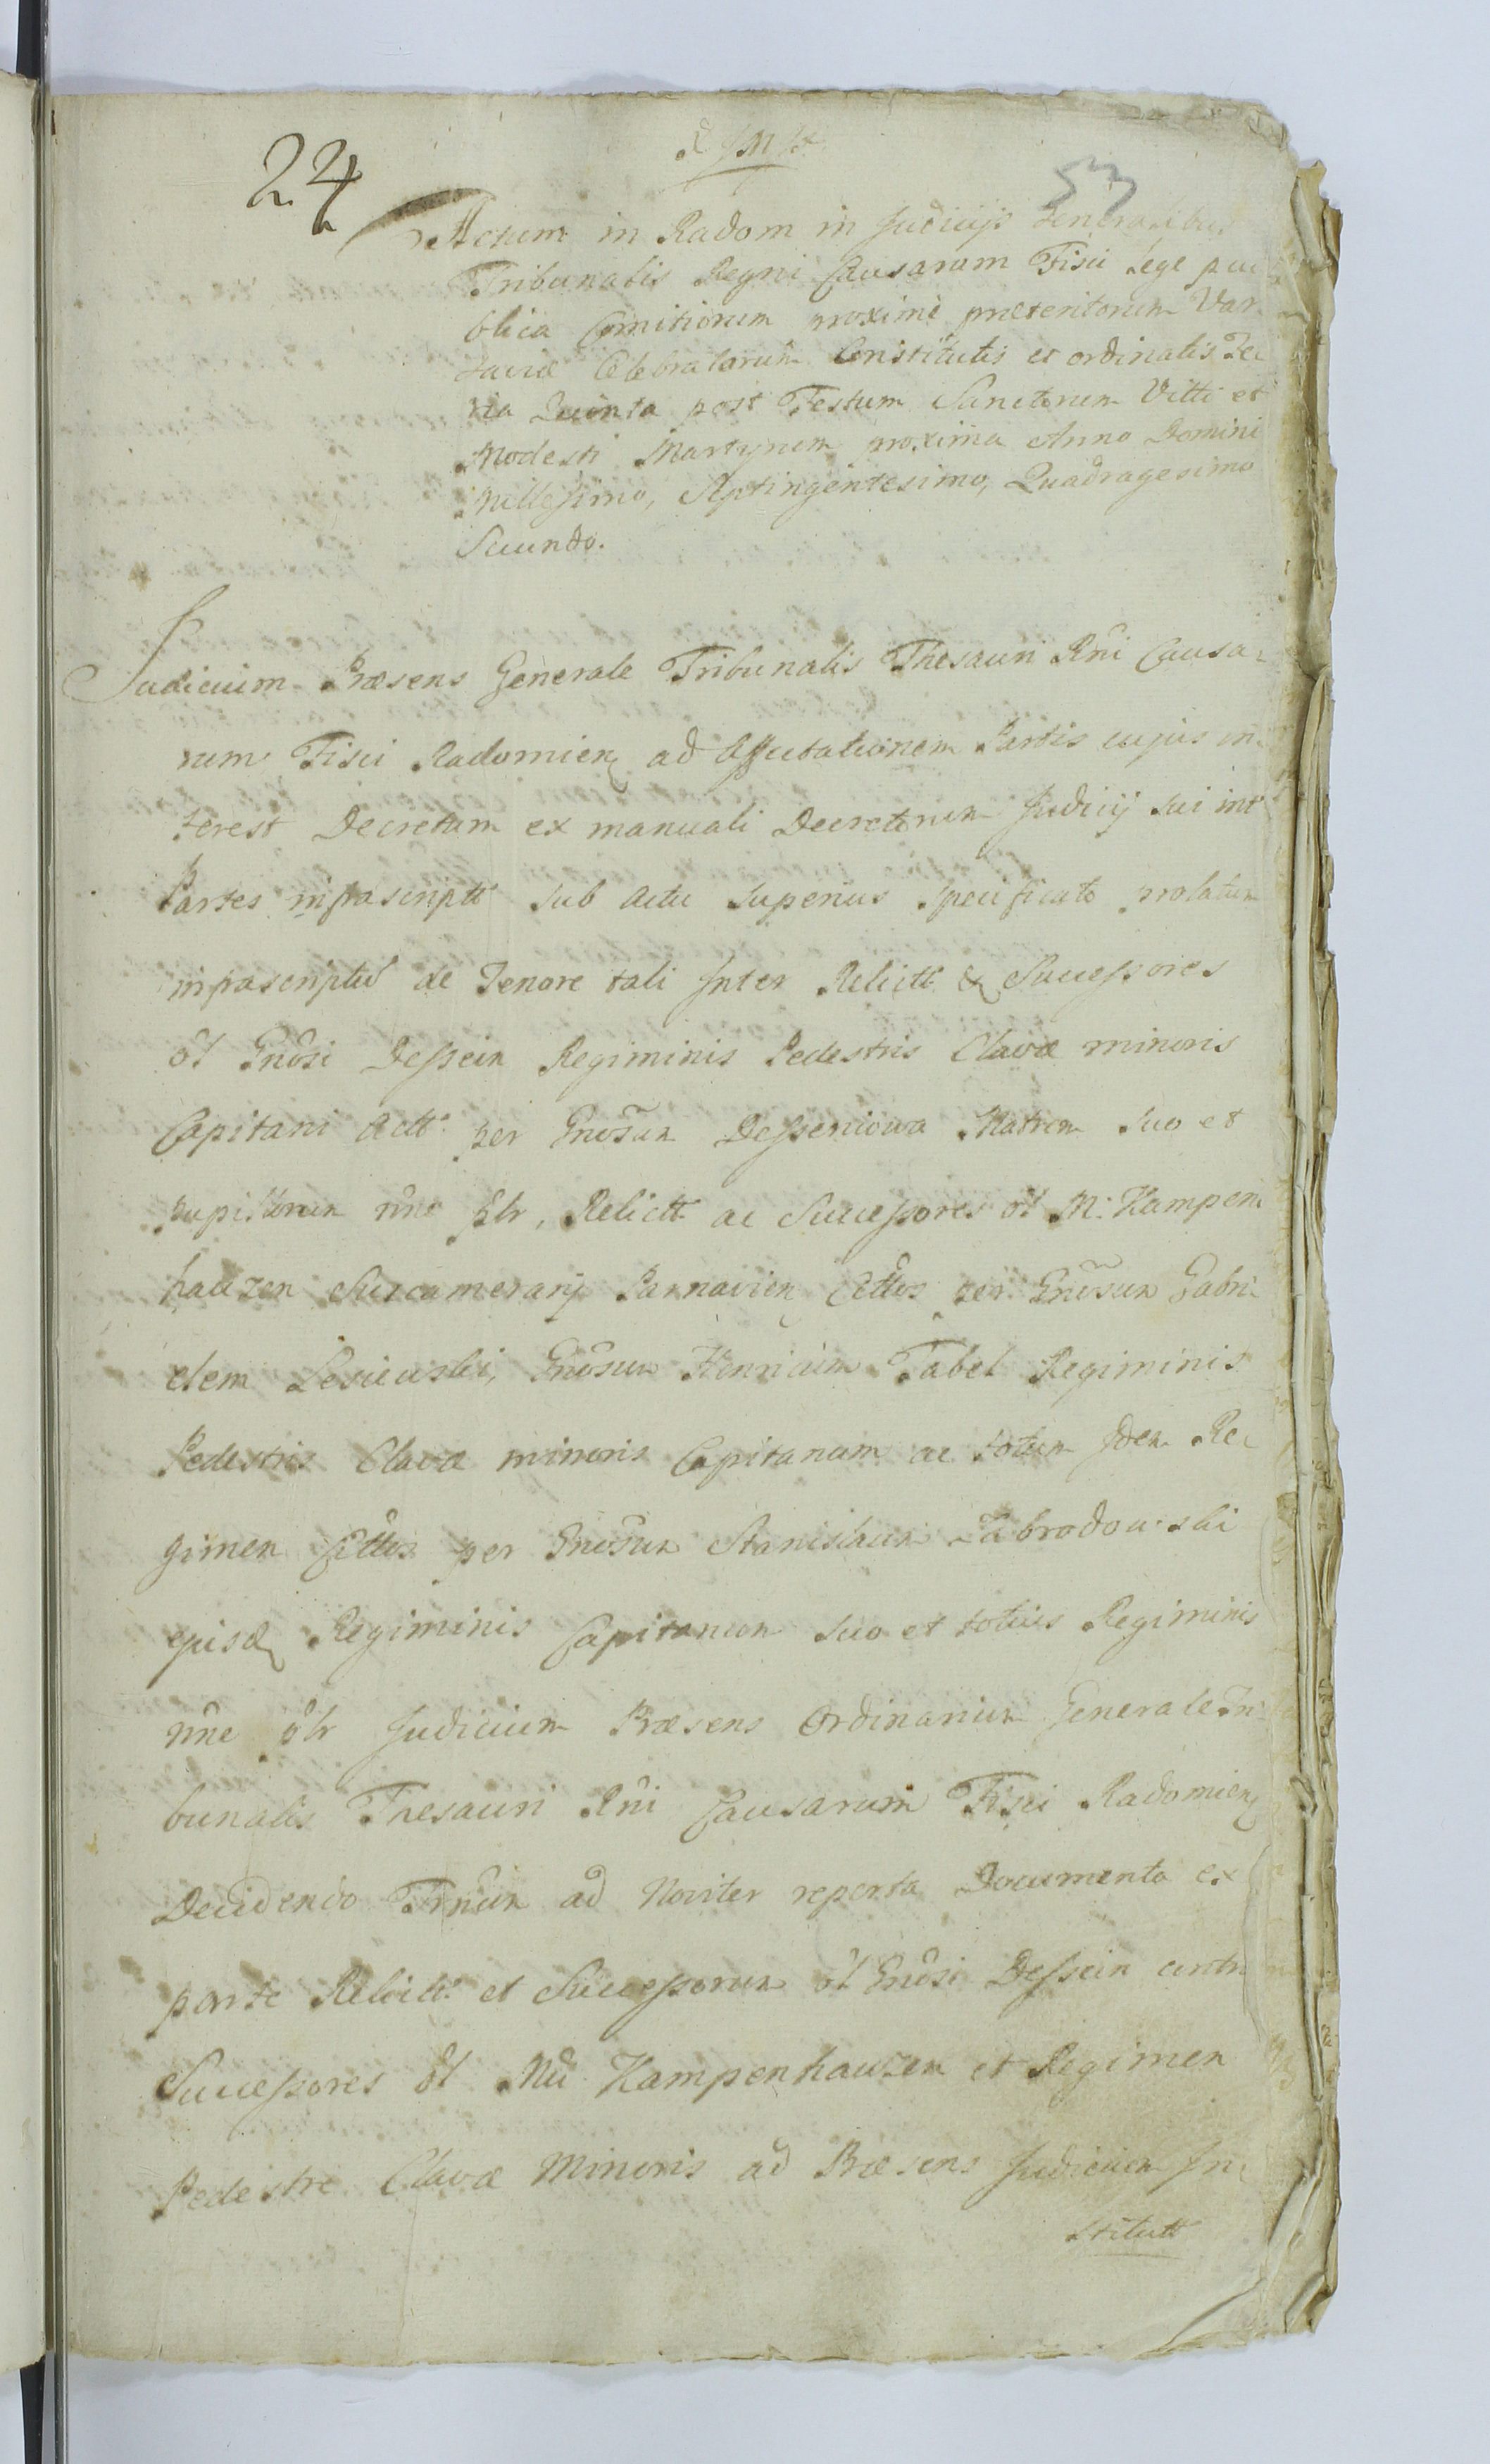 24
53
Actum in Radom in Judicijs Generalibus
Tribunalis Regni Causarum Fisci Lege pu-
blica Comitiorum proxime praeteritorum Var-
saviae Celebratorum Constitutis et ordinatis Fe-
ria Quinta post Festum Sanctorum Vitti et
Modesti Martyrum proxima Anno Domini
Millesimo, Septingentesimo, Quadragesimo
Secundo.
Judicium Praesens Generale Tribunalis Thesauri Rni Causa-
rum Fisci Radomien ad Affectationem Partis cujus in-
terest Decretum ex manuali Decretorum Judicij sui int
Partes infrascriptt sub Actu superius specificato prolatum
infrascriptus de Tenore tali Inter Relictt & Successores
ol Gnosi Dessein Regiminis Pedestris Clavae minoris
Capitani Actt per Gnosam Desseniowa Matrem suo et
pupillorum nne Relictt ac Successores ol M: Kampen-
hauzen Succamerarij Parnavien Cittos per Gnosum Gabri-
elem Lesiewski, Gnosum Henricum Tabel Regiminis
Pedestris Clavae minoris Capitanum ac totum Idem Re-
gimen Cittos per Gnosum Stanislaum Zabrodowski
ejusd Regiminis Capitaneum suo et totius Regiminis
nne Judicium Praesens Ordinarium Generale Tri-
bunalis Thesauri Rni Causarum Fisci Radomien
Decidendo Trnum ad Noviter reperta Documenta ex
parte Relictt et Successorum ol Gnosi Dessein contra
Successores ol Mci Kampenhauzen et Regimen
Pedestre Clavae Minoris ad Praesens Judicium In-
stitutt